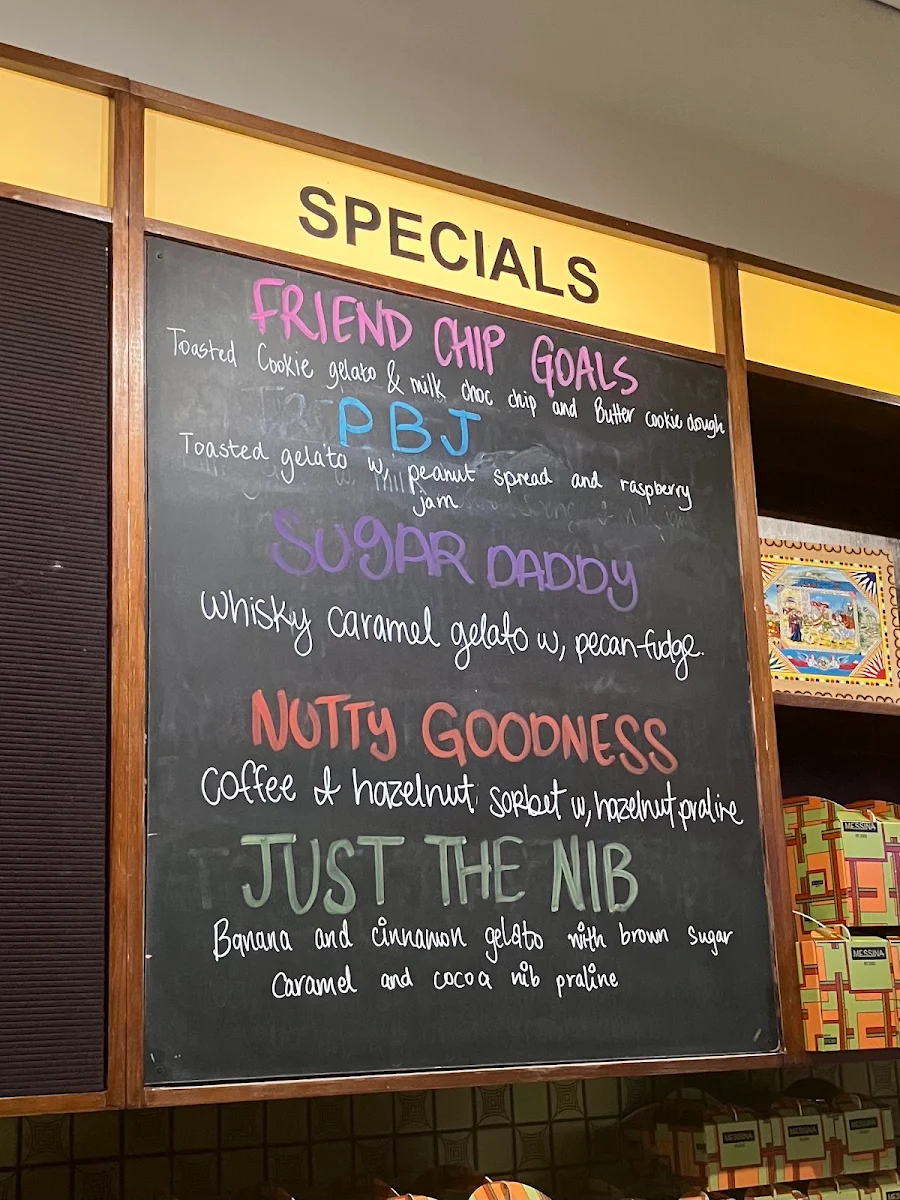 SPECIALS
FRIEND CHIP GOALS
Toasted Cookie gelato & milk choc chip and Butter cookie dough
PBJ
Toasted gelato w, peanut spread and raspberry
jam
SUGAR DADDY
whisky caramel gelato w, pecan fudge.
NUTTY GOODNESS
Coffee & hazelnut sorbet w, hazelnut praline
JUST THE NIB
Banana and cinnamon gelato with brown sugar
Caramel and cocoa nib praline
MESSINA
MESSINA
MESSINA
MESSINA
MESSINA